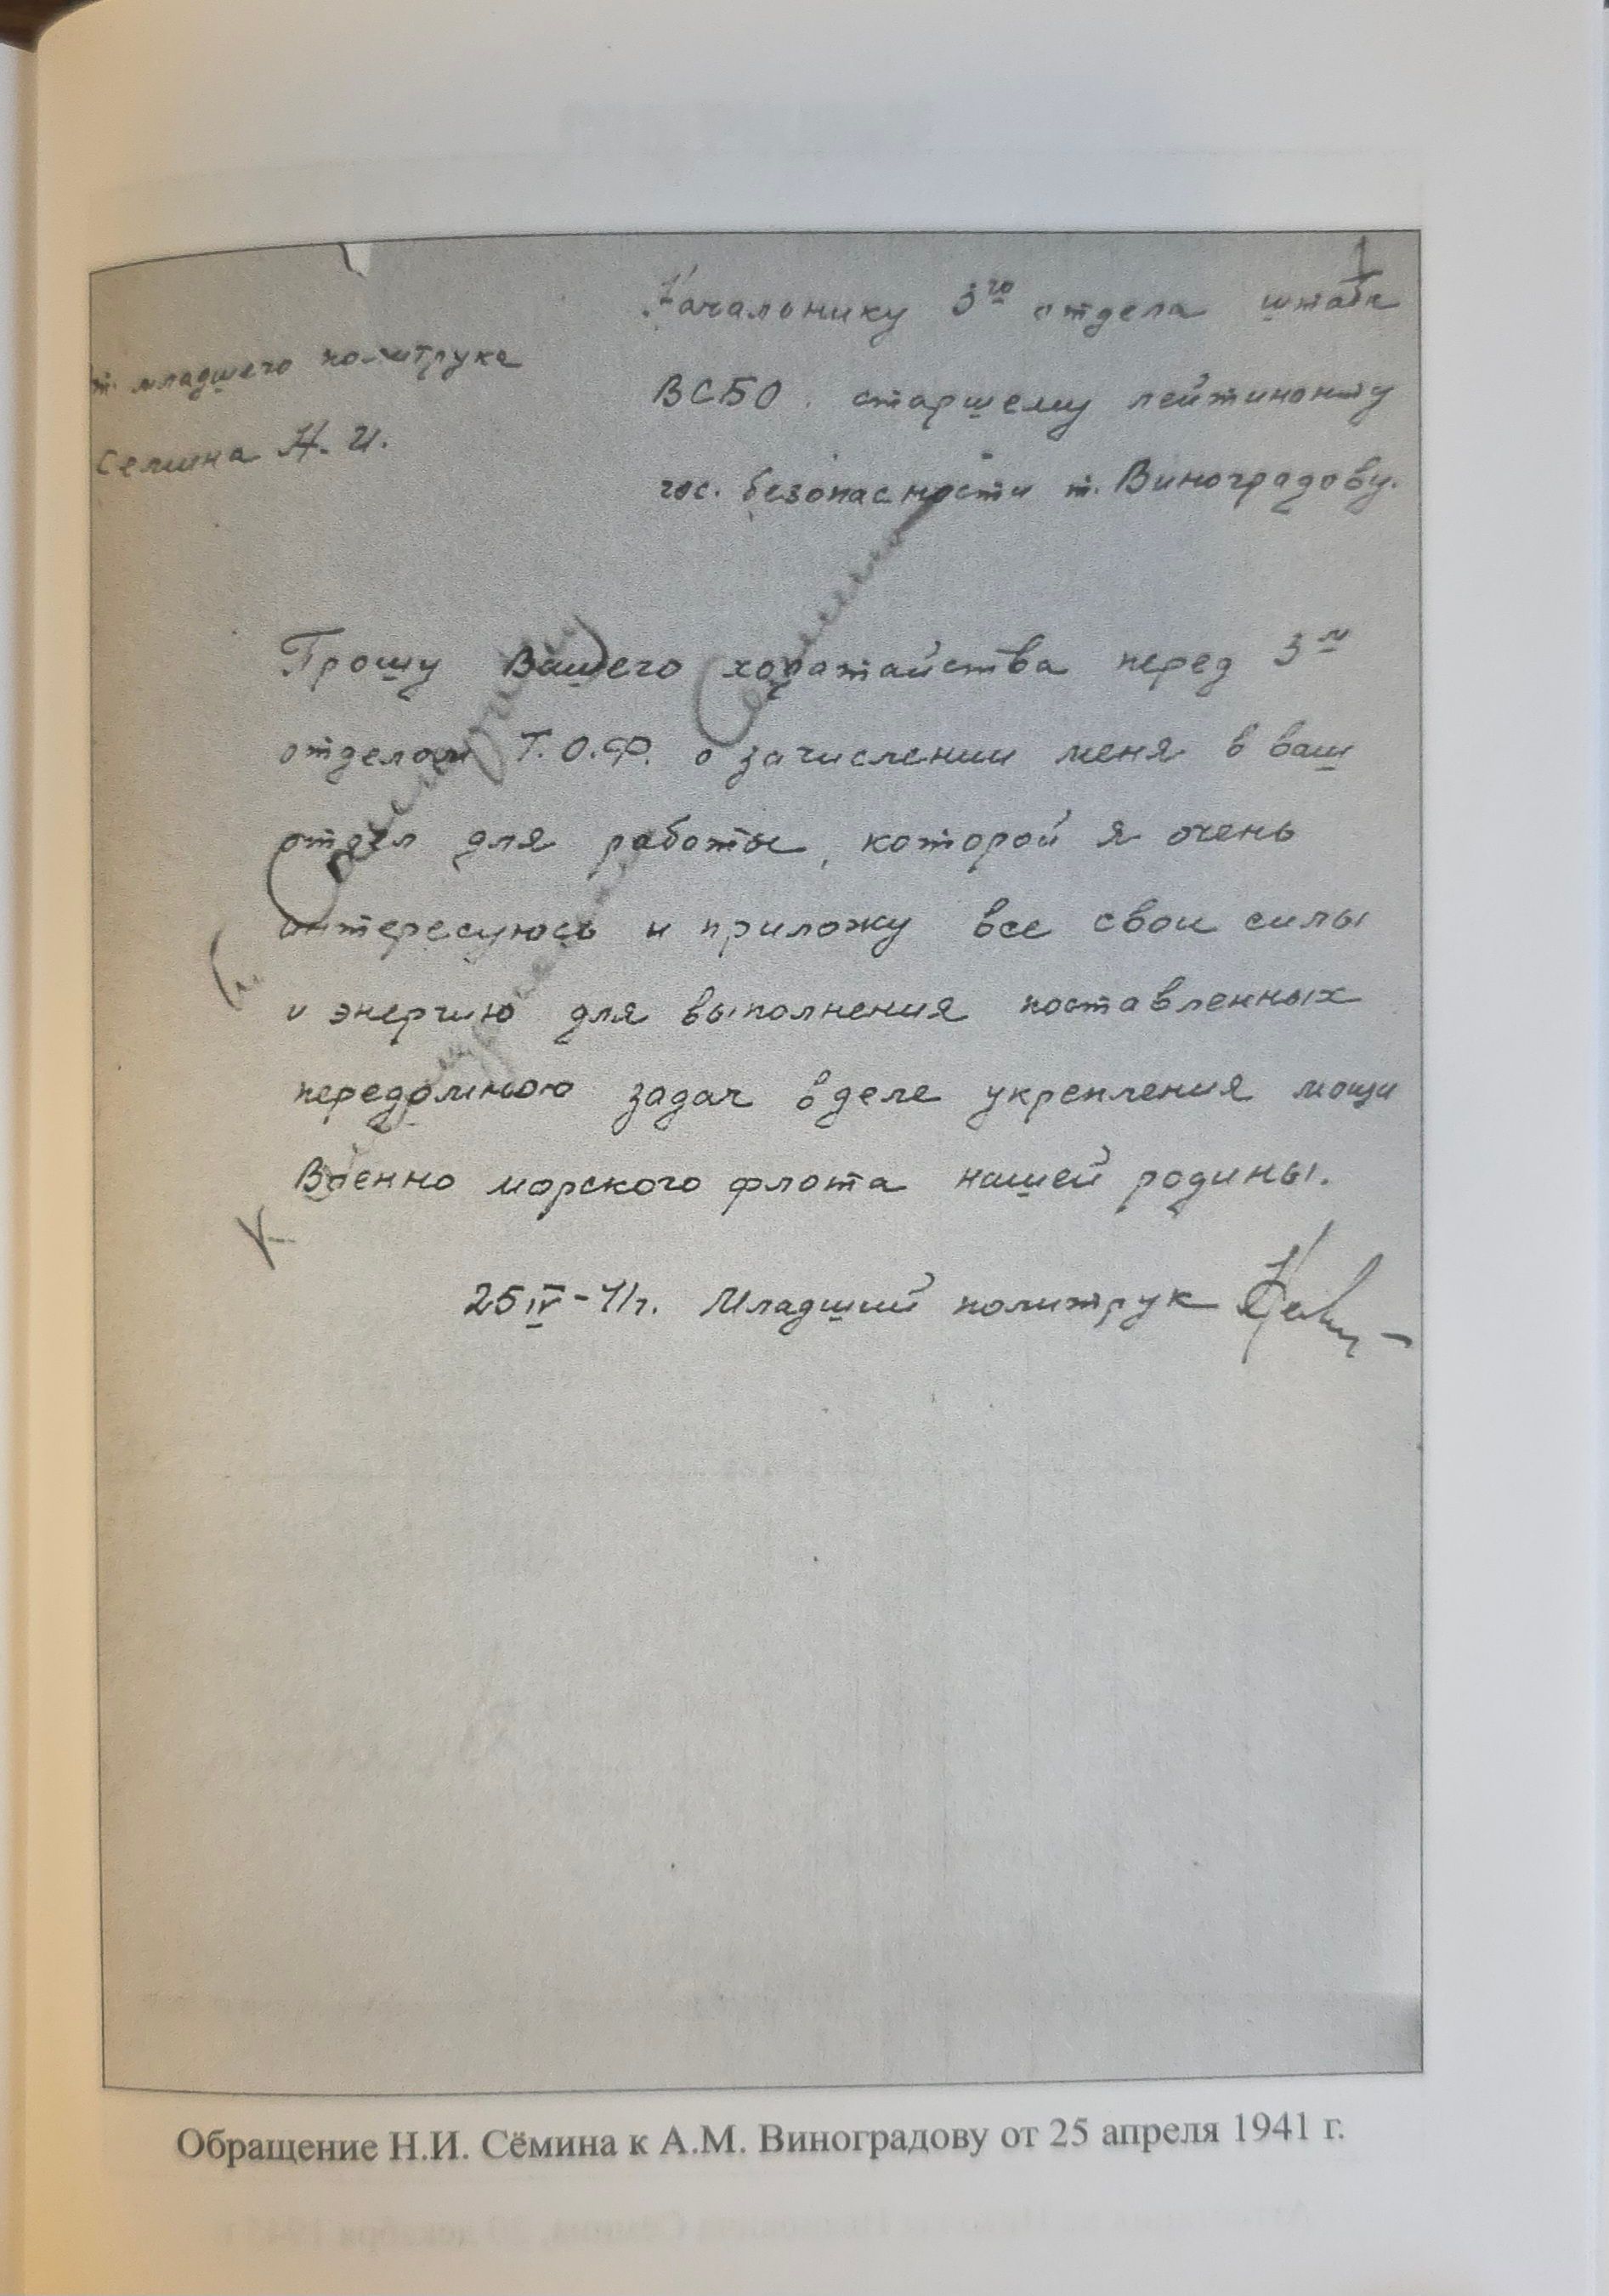 1
Начальнику 3го отдела штаба
ВСБО. старшему лейтинанту
гос. безопасности т. Виноградову.
т. младшего политрука
Семина Н. И.
Прошу Вашего ходатайства перед 3м
отделом Т.О.Ф. о зачислении меня в ваш
отдел для работы, которой я очень
интересуюсь и приложу все свои силы
и энергию для выполнения поставленных
передомною задач в деле укрепления мощи
Военно морского флота нашей родины.
25 IV-41г. Младший политрук
Обращение Н.И. Сёмина к А.М. Виноградову от 25 апреля 1941 г.